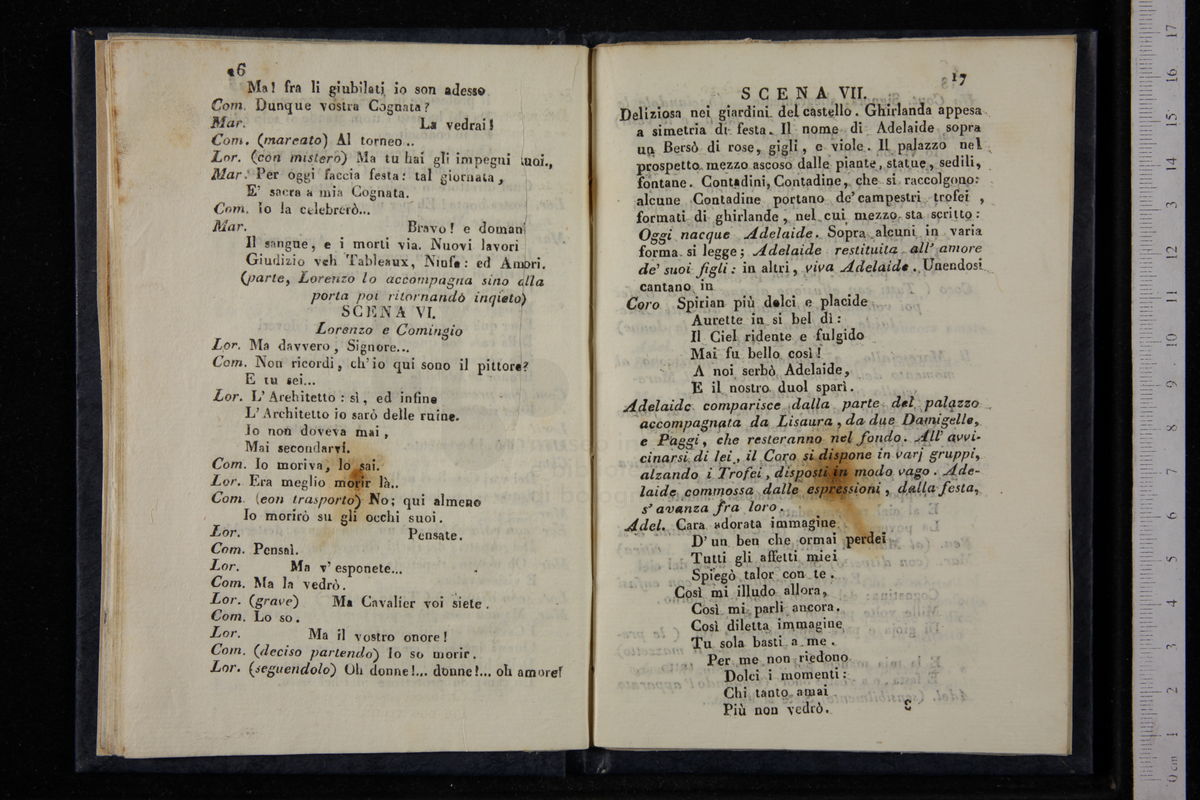 16
Ma! fra li giubilati io son adesso
Com. Dunque vostra Cognata?
Mar. La vedrai!
Com. (marcato) Al torneo..
Lor. (con mistero) Ma tu hai gli impegni tuoi.,
Mar. Per oggi faccia festa: tal giornata,
E' sacra a mia Cognata.
Com. io la celebrerò...
Mar. Bravo! e domani
Il sangue, e i morti via. Nuovi lavori
Giudizio veh Tableaux, Ninfe: ed Amori.
(parte, Lorenzo lo accompagna sino alla
porta poi ritornando inquieto)
SCENA VI.
Lorenzo e Comingio
Lor. Ma davvero, Signore...
Com. Non ricordi, ch'io qui sono il pittore?
E tu sei...
Lor. L'Architetto: sì, ed infine
L'Architetto io sarò delle ruine.
Io non doveva mai,
Mai secondarvi.
Com. Io moriva, lo sai.
Lor. Era meglio morir là..
Com. (eon trasporto) No; qui almeno
Io morirò su gli occhi suoi.
Lor. Pensate.
Com. Pensai.
Lor. Ma v'esponete...
Com. Ma la vedrò.
Lor. (grave) Ma Cavalier voi siete.
Com. Lo so.
Lor. Ma il vostro onore!
Com. (deciso partendo) Io so morir.
Lor. (seguendolo) Oh donne!... donne!... oh amore!
17
SCENA VII.
Deliziosa nei giardini del castello. Ghirlanda appesa
a simetria di festa. Il nome di Adelaide sopra
un Bersò di rose, gigli, e viole. Il palazzo nel
prospetto mezzo ascoso dalle piante, statue, sedili,
fontane. Contadini, Contadine, che si raccolgono:
alcune Contadine portano de' campestri trofei,
formati di ghirlande, nel cui mezzo sta scritto:
Oggi nacque Adelaide. Sopra alcuni in varia
forma si legge; Adelaide restituita all' amore
de' suoi figli: in altri, viva Adelaide. Unendosi
cantano in
Coro Spirian più dolci e placide
Aurette in si bel dì:
Il Ciel ridente e fulgido
Mai fu bello così!
A noi serbò Adelaide,
E il nostro duol sparì.
Adelaide comparisce dalla parte del palazzo
accompagnata da Lisaura, da due Damigelle,
e Paggi, che resteranno nel fondo. All' avvi-
cinarsi di lei, il Coro si dispone in varj gruppi,
alzando i Trofei, disposti in modo vago. Ade-
laide commossa dalle espressioni, dalla festa,
s'avanza fra loro.
Adel. Cara adorata immagine
D'un ben che ormai perdei
Tutti gli affetti miei
Spiegò talor con te.
Così mi illudo allora,
Così mi parli ancora.
Così diletta immagine
Tu sola basti a me.
Per me non riedono
Dolci i momenti:
Chi tanto amai
Più non vedrò.